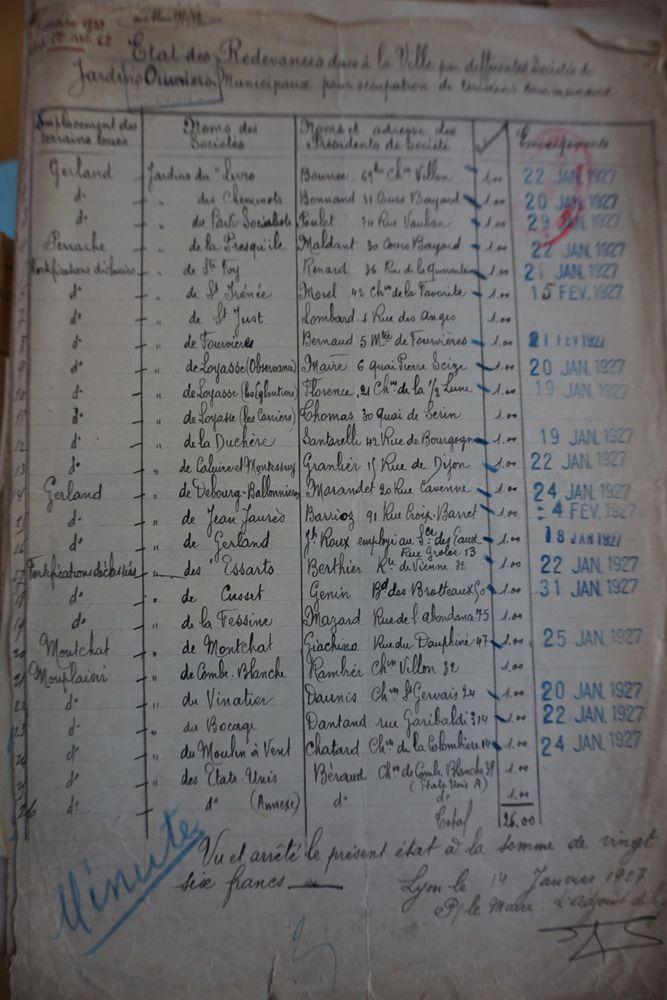 Etat des Redevances dues à la Ville par différentes Sociétés de
Jardins Ouvriers Municipaux pour occupation de terrains communaux
Emplacement des terrains loués Noms des Sociétés Noms et adresse des Présidents de Société Emargements
Gerland Jardins du " Livro Bournee 69bis Chin Villon 1.00 22 JAN. 1927
d° " des Cheminots Bonnand 31 Cours Bayard 1.00 20 JAN. 1927
d° " du Parti Socialiste Poulet 74 Rue Vauban 1.00 29 JAN. 1927
Perrache " de la Presqu'ile Maldant 30 Cours Bayard 1.00 22 JAN. 1927
Fortifications déclassées " de Ste Foy Renard 36 Rue de la Quarantaine 1.00 21 JAN. 1927
d° " de St Irénée Morel 42 Chin de la Favorite 1.00 15 FEV. 1927
7 d° " de St Just Lombard 1 Rue des Anges 1.00
8 d° " de Fourvières Bernaud 5 Mtée de Fourvières 1.00 21 FEV 1927
9 d° " de Loyasse (Observance) Maire 6 quai Pierre Scize 1.00 20 JAN. 1927
10 d° " de Loyasse (les Eglantiers) Florence 21 Chin de la 1/2 Lune 1.00 19 JAN. 1927
11 d° " de Loyasse (les Carriers) Thomas 30 Quai de Serin 1.00
12 d° " de la Duchère Santarelli 42 Rue de Bourgogne 1.00 19 JAN. 1927
13 d° " de Caluire et Montessuy Granlier 15 Rue de Dijon 1.00 22 JAN. 1927
14 Gerland " de Debourg-Ballonnière Marandet 20 Rue Cavenne 1.00 24 JAN. 1927
15 d° " de Jean Jaurès Barrioz 91 Rue Croix-Barret 1.00 -4 FEV. 1927
16 d° " de Gerland Jh Roux employé au Sce des Eaux 1.00 18 JAN 1927
Rue Grolée 13
17 Fortifications déclassées " des Essarts Berthier Rte de Vienne 32 1.00 22 JAN. 1927
18 d° " de Cusset Genin Bd des Brotteaux 50 1.00 31 JAN. 1927
19 d° " de la Fessine Mazard Rue de l'Abondance 75 1.00
20 Montchat " de Montchat Giachino Rue du Dauphiné 47 1.00 25 JAN. 1927
21 Monplaisir " de Combe-Blanche Rambier Chin Villon 32 1.00
22 d° " du Vinatier Daunis Chin St Gervais 24 1.00 20 JAN. 1927
23 d° " du Bocage Dantand rue Garibaldi 314 1.00 22 JAN. 1927
24 d° " du Moulin à Vent Chatard Chin de la Colombière 14 1.00 24 JAN. 1927
d° " des Etats-Unis Béraud Chin de Combe Blanche 39 1.00
(Etats Unis A)
26 d° d° (Annexe) d° d° 1.00
Total 26.00
Vu et arrêté le présent état à la somme de vingt
six francs
Lyon le 14 Janvier 1927
P/ le Maire L'adjoint
Minute